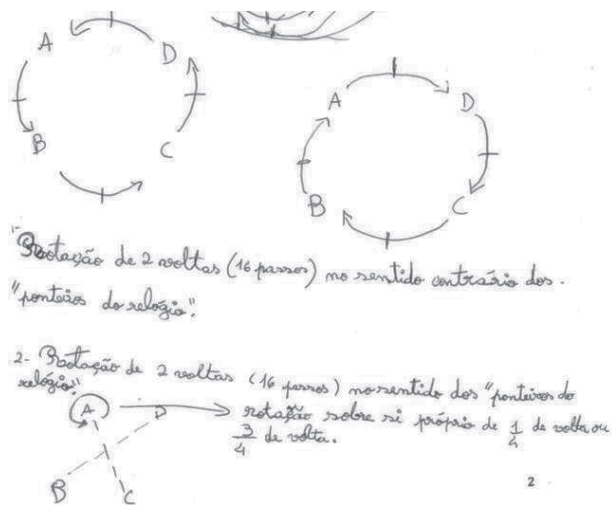 A D
B C
A D
B C
1- Rotação de 2 voltas (16 passos) no sentido contrário dos
"ponteiros do relógio".
2- Rotação de 2 voltas (16 passos) no sentido dos "ponteiros do
relógio".
A D rotação sobre si próprio de 1/4 de volta ou
3/4 de volta.
B C
2